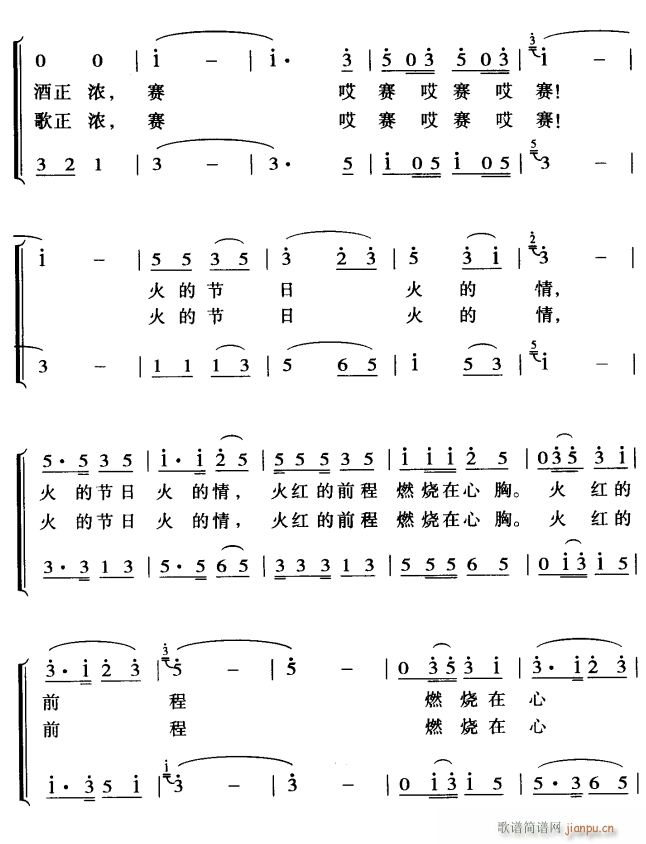 0 0 | i̇ – | i̇ · 3̇ | 5̇ 0 3̇ 5̇ 0 3̇ | 3̇ i̇ – |
酒正 浓， 赛 哎 赛 哎 赛 哎 赛！
歌正 浓， 赛 哎 赛 哎 赛 哎 赛！
3 2 1 | 3 – | 3 · 5 | i̇ 0 5 i̇ 0 5 | 5 3 – |
i̇ – | 5 5 3 5 | 3̇ 2̇ 3̇ | 5̇ 3̇ i̇ | 2̇ 3̇ – |
火 的 节 日 火 的 情，
火 的 节 日 火 的 情，
3 – | 1 1 1 3 | 5 6 5 | i̇ 5 3 | 5 i̇ – |
5 · 5 3 5 | i̇ · i̇ 2̇ 5 | 5 5 5 3 5 | i̇ i̇ i̇ 2̇ 5 | 0 3̇ 5̇ 3̇ i̇ |
火 的节日 火 的情， 火红的前程 燃烧在心 胸。 火 红的
火 的节日 火 的情， 火红的前程 燃烧在心 胸。 火 红的
3 · 3 1 3 | 5 · 5 6 5 | 3 3 3 1 3 | 5 5 5 6 5 | 0 i̇ 3̇ i̇ 5 |
3̇ · i̇ 2̇ 3̇ | 3̇ 5̇ – | 5̇ – | 0 3̇ 5̇ 3̇ i̇ | 3̇ · i̇ 2̇ 3̇ |
前 程 燃 烧 在 心
前 程 燃 烧 在 心
i̇ · 3̇ 5 i̇ | i̇ 3̇ – | 3̇ – | 0 i̇ 3̇ i̇ 5 | 5 · 3 6 5 |
歌谱简谱网 jianpu.cn